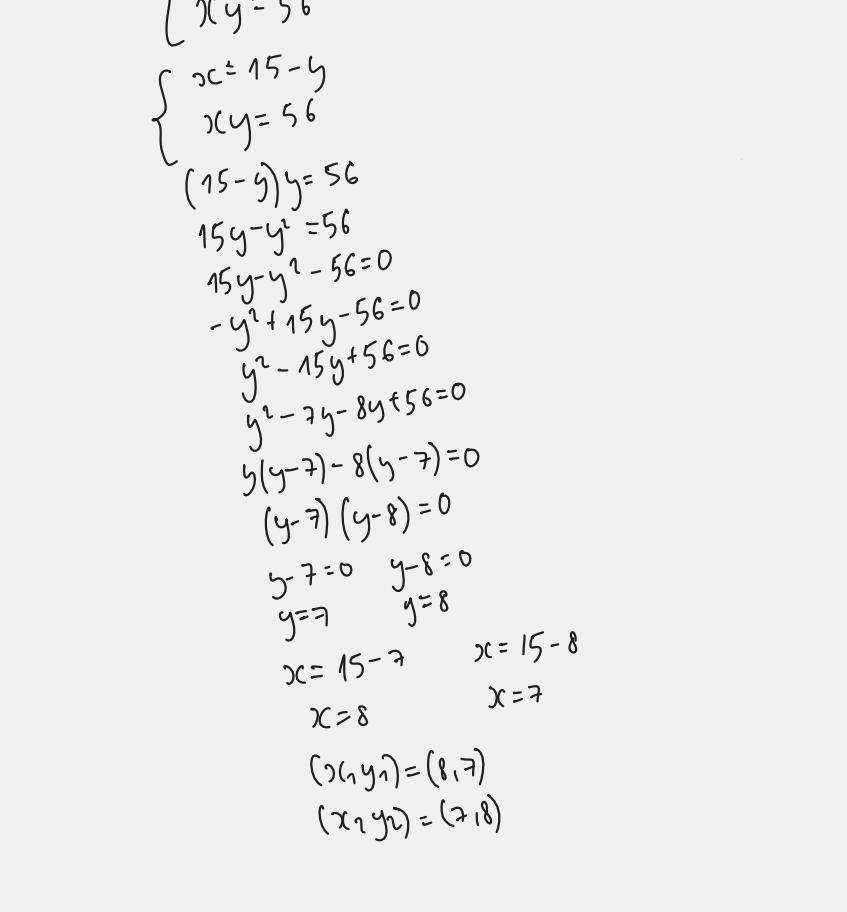 xy = 56
x = 15 - y
xy = 56
(15 - y)y = 56
15y - y² = 56
15y - y² - 56 = 0
- y² + 15y - 56 = 0
y² - 15y + 56 = 0
y² - 7y - 8y + 56 = 0
y(y - 7) - 8(y - 7) = 0
(y - 7) (y - 8) = 0
y - 7 = 0 y - 8 = 0
y = 7 y = 8
x = 15 - 7 x = 15 - 8
x = 8 x = 7
(x₁ y₁) = (8,7)
(x₂ y₂) = (7,8)